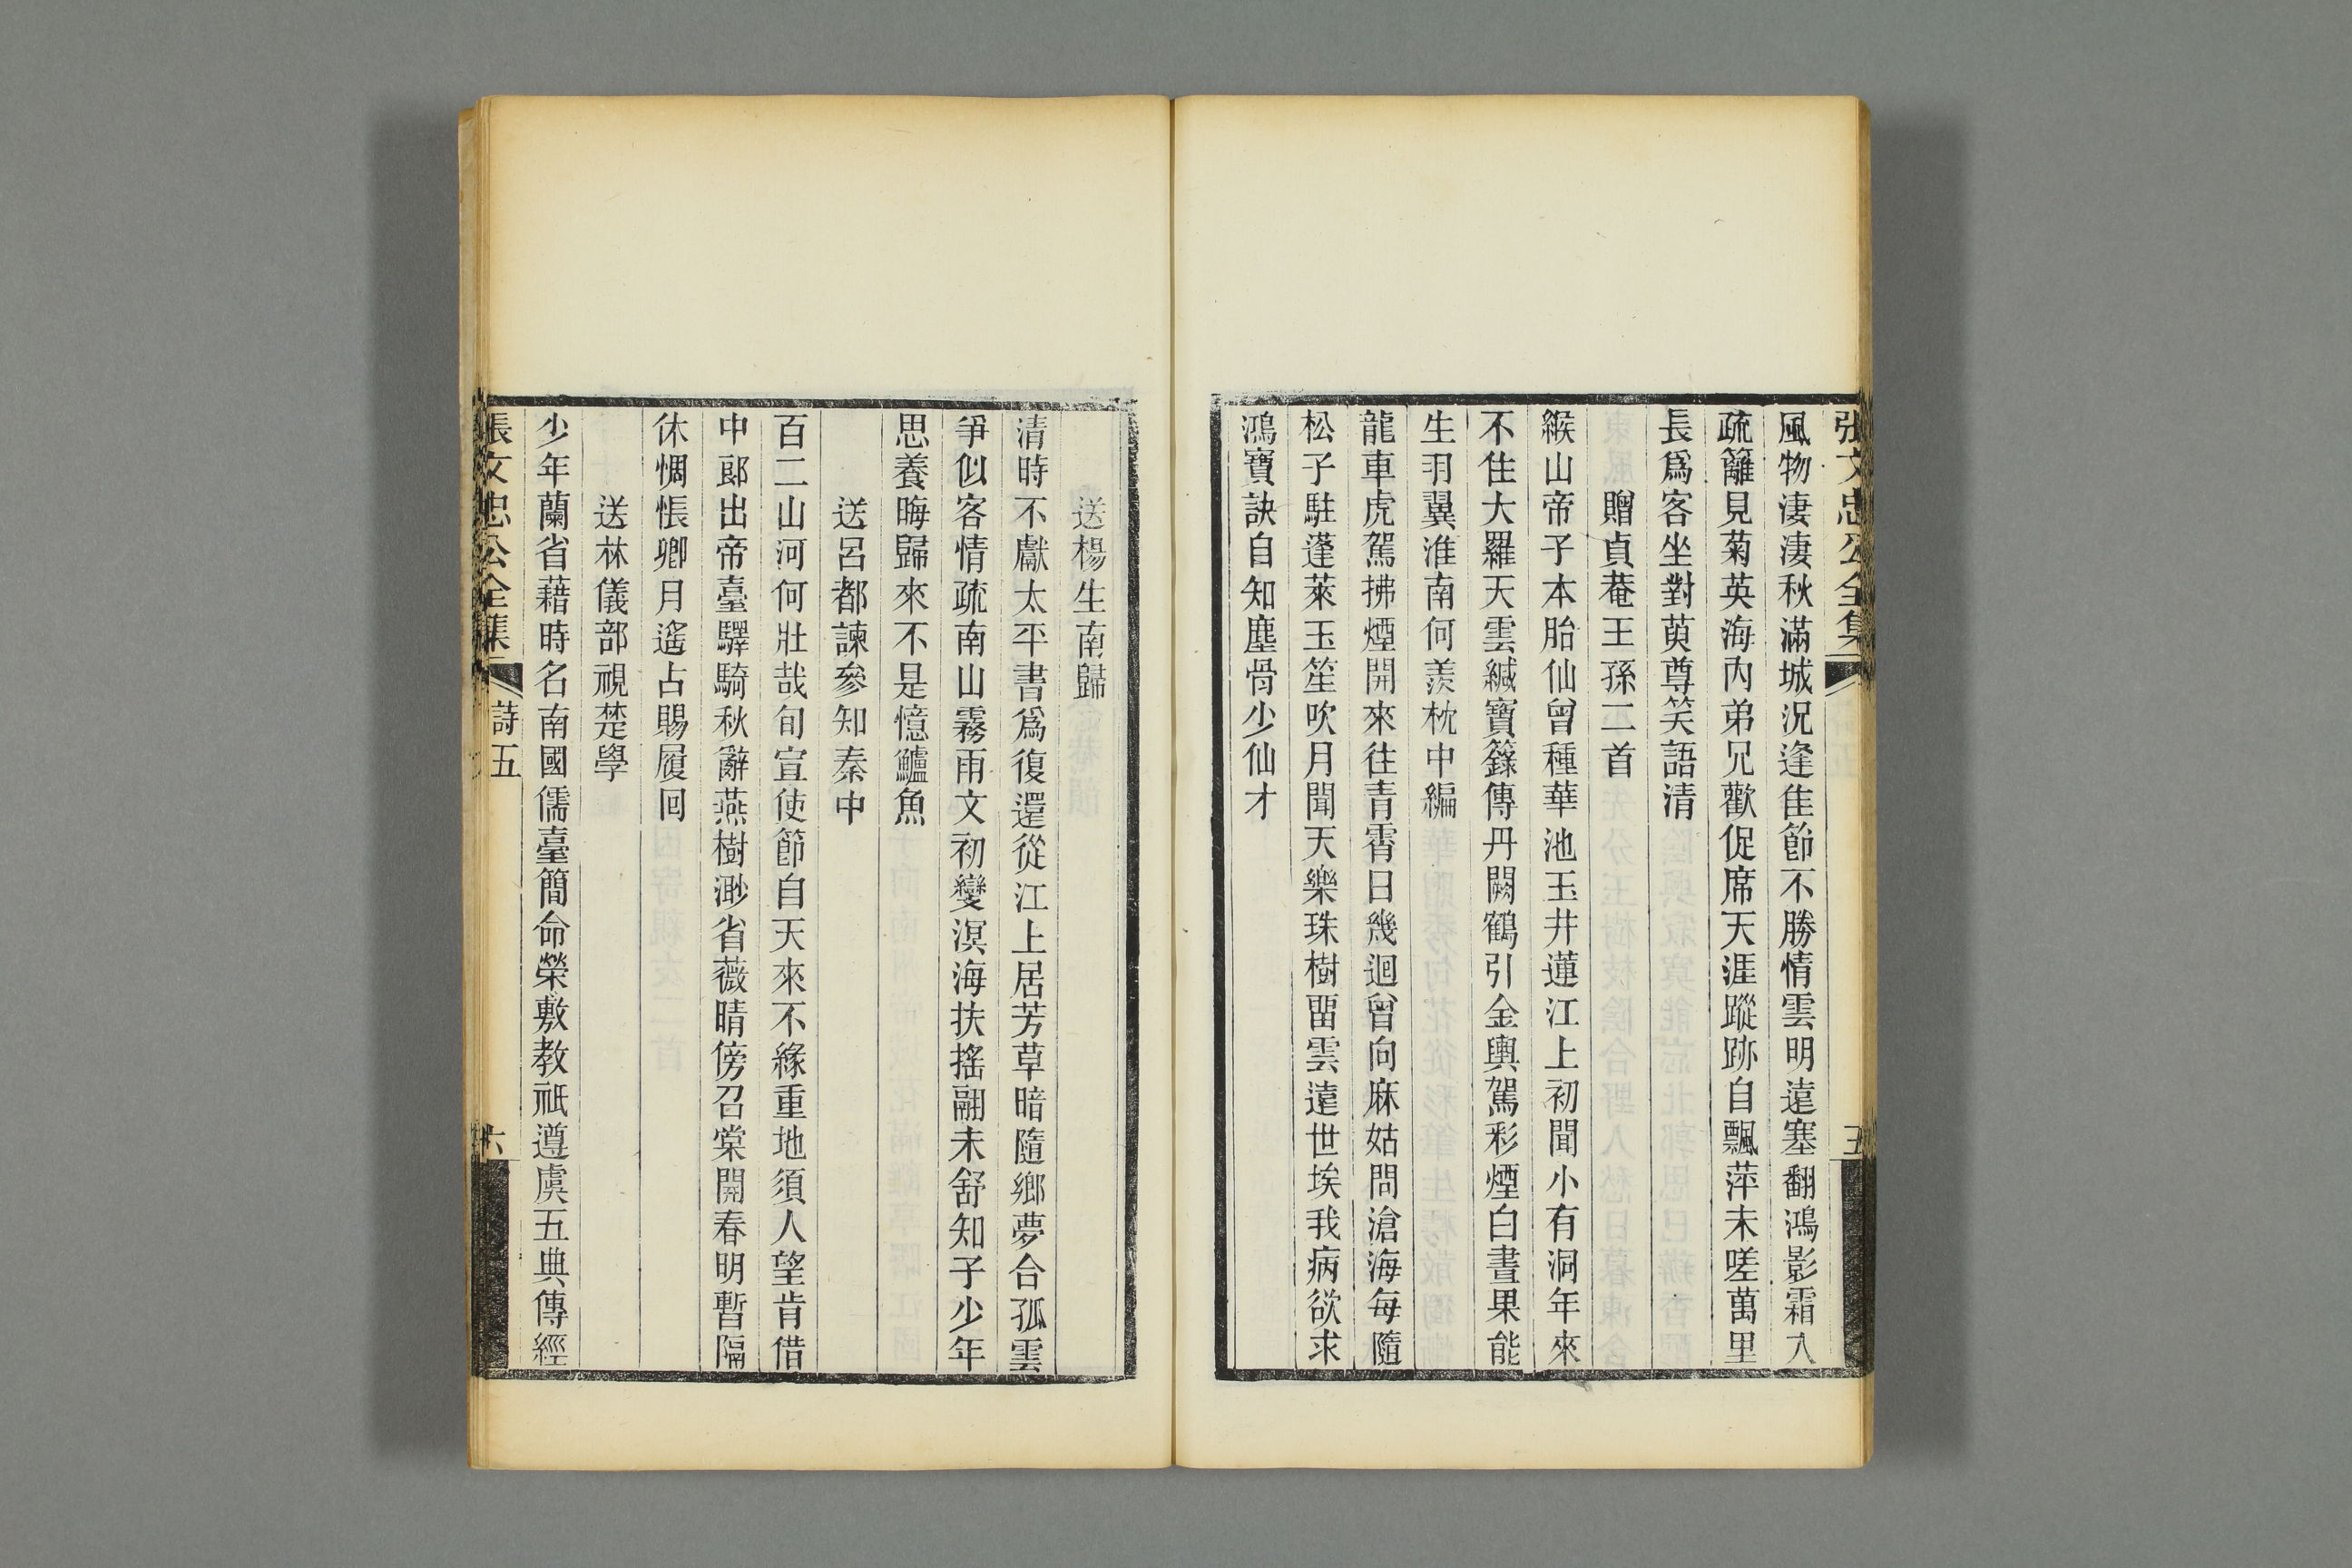 張文忠公全集
五
風物淒淒秋滿城況逢佳節不勝情雲明遠塞翻鴻影霜入
疏籬見菊英海內弟兄歡促席天涯蹤跡自飄萍未嗟萬里
長爲客坐對萸尊笑語清
贈貞菴王孫二首
緱山帝子本胎仙曾種華池玉井蓮江上初聞小有洞年來
不住大羅天雲緘寶籙傳丹闕鶴引金輿駕彩煙白晝果能
生羽翼淮南何羨枕中編
龍車虎駕拂煙開來往青霄日幾迴曾向麻姑問滄海每隨
松子駐蓬萊玉笙吹月聞天樂珠樹畱雲遠世埃我病欲求
鴻寶訣自知塵骨少仙才
送楊生南歸
清時不獻太平書爲復還從江上居芳草暗隨鄉夢合孤雲
爭似客情疏南山霧雨文初變溟海扶搖翮未舒知子少年
思養晦歸來不是憶鱸魚
送呂都諫參知秦中
百二山河何壯哉旬宣使節自天來不緣重地須人望肯借
中郎出帝臺驛騎秋辭燕樹渺省薇晴傍召棠開春明暫隔
休惆悵卿月遙占賜履回
送林儀部視楚學
少年蘭省藉時名南國儒臺簡命榮敷教祗遵虞五典傳經
張文忠公全集
詩五
六